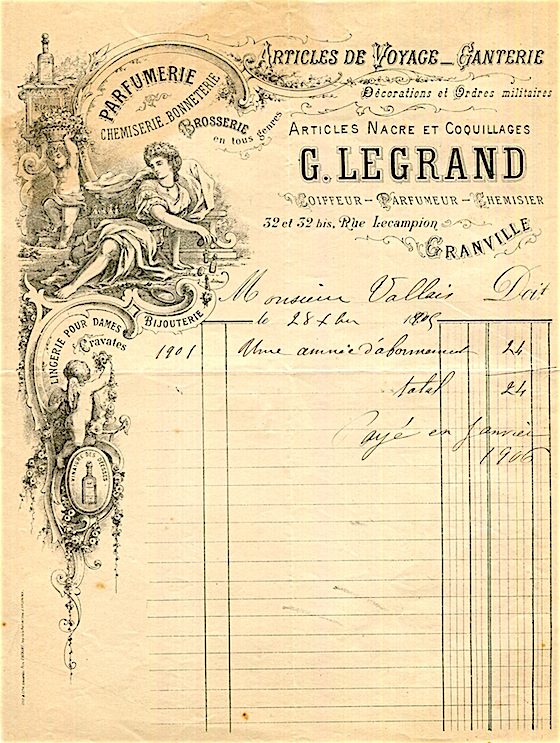 ARTICLES DE VOYAGE_GANTERIE
Décorations et Ordres militaires
PARFUMERIE
CHEMISERIE.BONNETERIE
BROSSERIE
en tous genres
ARTICLES NACRE ET COQUILLAGES
G. LEGRAND
COIFFEUR – PARFUMEUR – CHEMISIER
32 et 32 bis, Rue Lecampion
GRANVILLE
BIJOUTERIE
LINGERIE POUR DAMES
Cravates
Monsieur Vallais Doit
le 28 Xbre 1905
1901 Une année d'abonnement 24
total 24
Payé en Janvier
1906